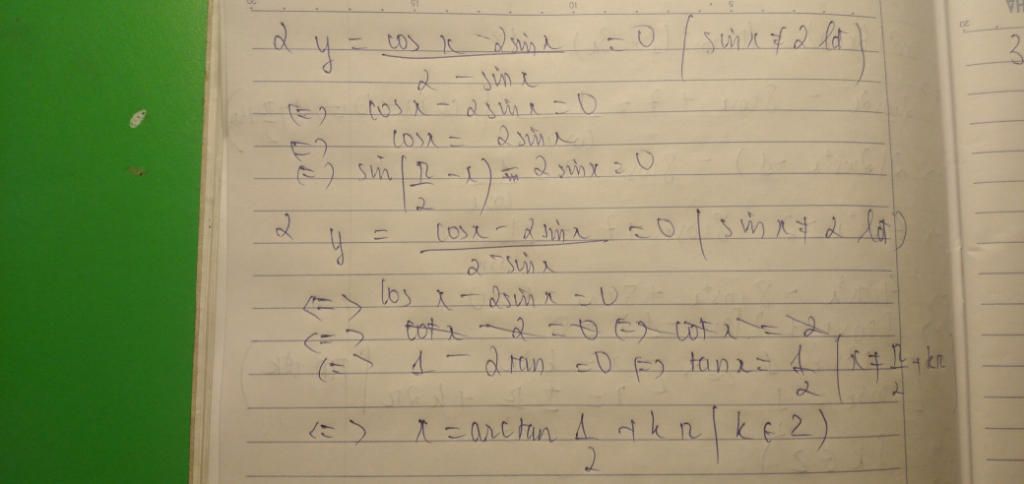 2 y = cos x - 2sinx / 2 - sinx = 0 ( sinx ≠ 2 lđ )
<=> cosx - 2sinx = 0
<=> cosx = 2sinx
<=> sin ( π/2 - x ) = 2sinx = 0
2 y = cosx - 2sinx / 2 - sinx = 0 ( sinx ≠ 2 lđ )
<=> cos x - 2sinx = 0
<=> cotx - 2 = 0 <=> cotx = 2
<=> 1 - 2tan = 0 <=> tanx = 1/2 ( x ≠ π/2 + kπ
<=> x = arctan 1/2 + kπ ( k ∈ Z )
3